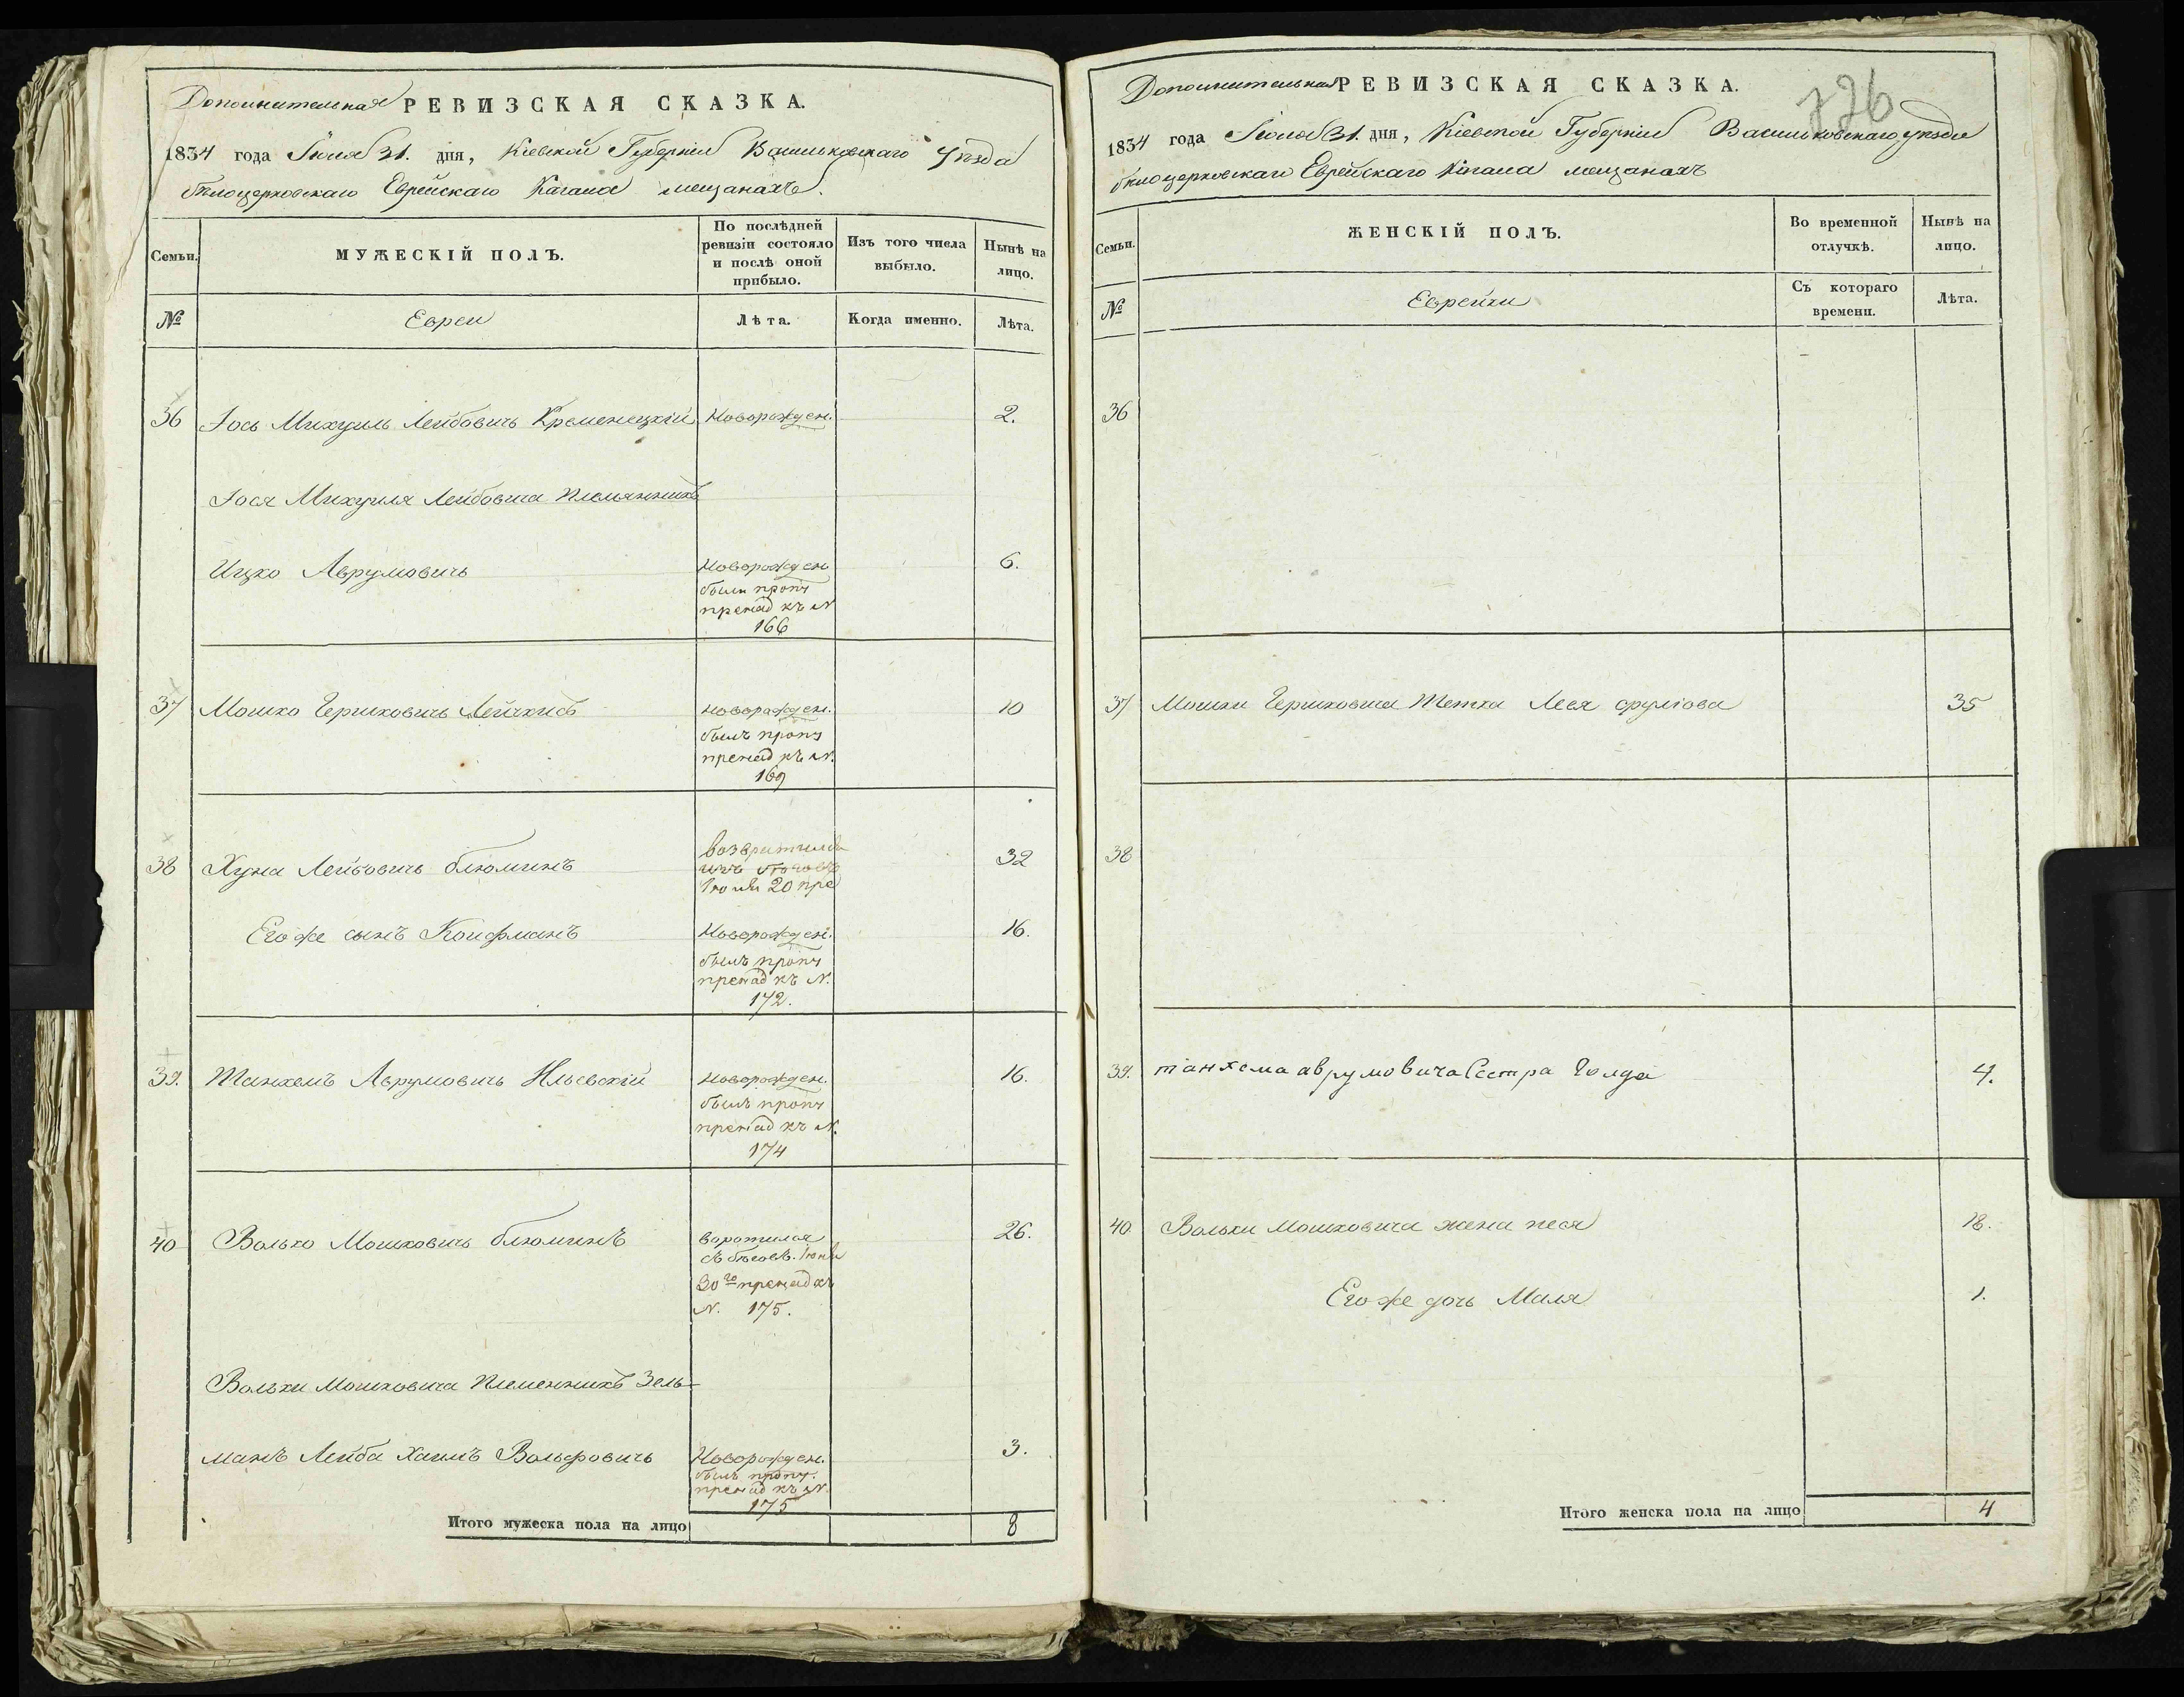 Дополнительная РЕВИЗСКАЯ СКАЗКА.
1834 года Іюля 31. дня, Кіевской Губерніи Васильковскаго Уѣзда
бѣлоцерковскаго Еврейскаго Кагала мещанахъ.
Семьи.
МУЖЕСКІЙ ПОЛЪ.
По послѣдней ревизіи состояло и послѣ оной прибыло.
Изъ того числа выбыло.
Нынѣ на лицо.
№
Евреи
Лѣта.
Когда именно.
Лѣта.
36 Іось Михуиль Лейбовичь Кременецкій Новорожден. 2.
Іося Михуиля Лейбовича Племянникъ
Ицко Аврумовичь Новорожден 6.
былъ проп
пренад къ N
166
37 Мошко Гершковичь Лейчкисъ новорожден. 10
былъ проп
пренад къ N.
169
38 Хуна Лейбовичь блюминъ возвратился 32
изъ бѣговъ
20 пре
Его же сынъ Койфманъ Новорожден. 16.
былъ проп
пренад къ N.
172.
39. Танхемъ Аврумовичь Ильевскій Новорожден. 16.
былъ проп
пренад къ N.
174
40 Волько Мошковичь блюминъ воротился 26.
съ бѣговъ. Іюня
30го пренад къ
N. 175.
Вольки Мошковича Племенникъ Зель-
манъ Лейба Хаимъ Вольфовичь Новорожден. 3.
былъ проп.
пренад къ N.
175
Итого мужеска пола на лицо 8
726
Дополнительная РЕВИЗСКАЯ СКАЗКА.
1834 года Іюля 31. дня, Кіевской Губерніи Васильковскаго уѣзда
бѣлоцерковскаго Еврейскаго Кагала мещанахъ
Семьи.
ЖЕНСКІЙ ПОЛЪ.
Во временной отлучкѣ.
Нынѣ на лицо.
№
Еврейки
Съ котораго времени.
Лѣта.
36
37 Мошки Гершковича Тетка Лея 35
38
39. танхема аврумовича Сестра Голда 4.
40 Вольки Мошковича жена песя 18.
Его же дочь Маля 1.
Итого женска пола на лицо 4